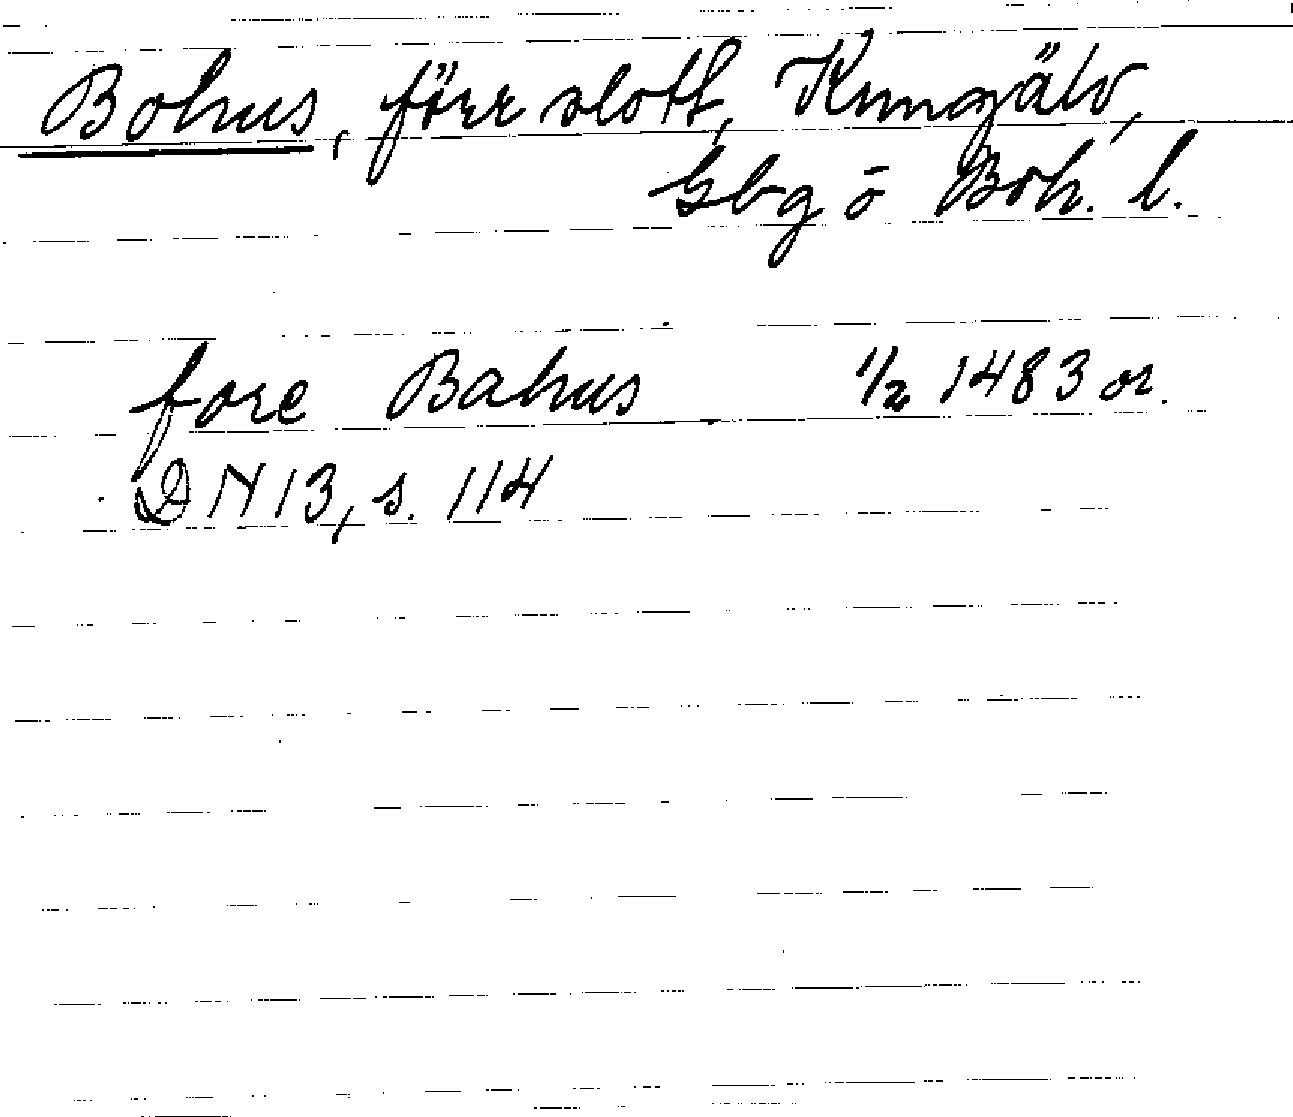 Bohus, förr slott, Kungälv,
Gbg ō Boh. l.
fore Bahus 1/2 1483 or.
DN 13, s. 114